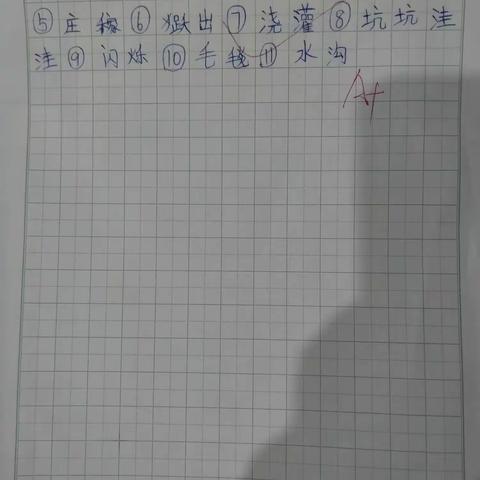 ⑤庄稼⑥跃出⑦浇灌⑧坑坑洼
洼⑨闪烁⑩毛毯⑪水沟
A+